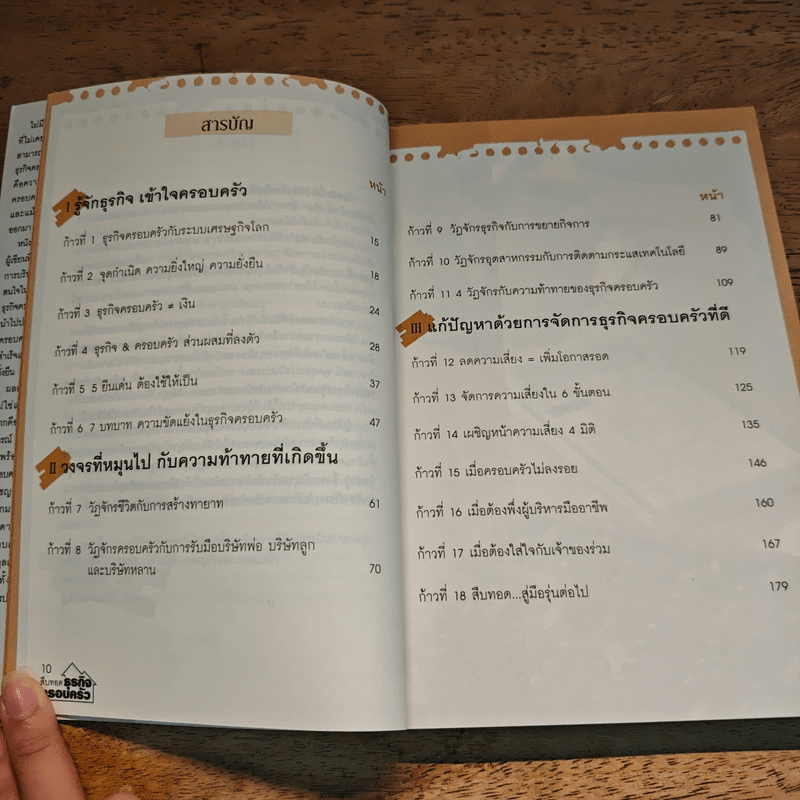 สารบัญ
หน้า
I รู้จักธุรกิจ เข้าใจครอบครัว
ก้าวที่ 1 ธุรกิจครอบครัวกับระบบเศรษฐกิจโลก 15
ก้าวที่ 2 จุดกำเนิด ความยิ่งใหญ่ ความยั่งยืน 18
ก้าวที่ 3 ธุรกิจครอบครัว ≠ เงิน 24
ก้าวที่ 4 ธุรกิจ & ครอบครัว ส่วนผสมที่ลงตัว 28
ก้าวที่ 5 5 ยืนเด่น ต้องใช้ให้เป็น 37
ก้าวที่ 6 7 บทบาท ความขัดแย้งในธุรกิจครอบครัว 47
II วงจรที่หมุนไป กับความท้าทายที่เกิดขึ้น
ก้าวที่ 7 วัฏจักรชีวิตกับการสร้างทายาท 61
ก้าวที่ 8 วัฏจักรครอบครัวกับการรับมือบริษัทพ่อ บริษัทลูก
และบริษัทหลาน 70
10
สืบทอด ธุรกิจ
ครอบครัว
หน้า
ก้าวที่ 9 วัฏจักรธุรกิจกับการขยายกิจการ 81
ก้าวที่ 10 วัฏจักรอุตสาหกรรมกับการติดตามกระแสเทคโนโลยี 89
ก้าวที่ 11 4 วัฏจักรกับความท้าทายของธุรกิจครอบครัว 109
III แก้ปัญหาด้วยการจัดการธุรกิจครอบครัวที่ดี
ก้าวที่ 12 ลดความเสี่ยง = เพิ่มโอกาสรอด 119
ก้าวที่ 13 จัดการความเสี่ยงใน 6 ขั้นตอน 125
ก้าวที่ 14 เผชิญหน้าความเสี่ยง 4 มิติ 135
ก้าวที่ 15 เมื่อครอบครัวไม่ลงรอย 146
ก้าวที่ 16 เมื่อต้องพึ่งผู้บริหารมืออาชีพ 160
ก้าวที่ 17 เมื่อต้องใส่ใจกับเจ้าของร่วม 167
ก้าวที่ 18 สืบทอด...สู่มือรุ่นต่อไป 179